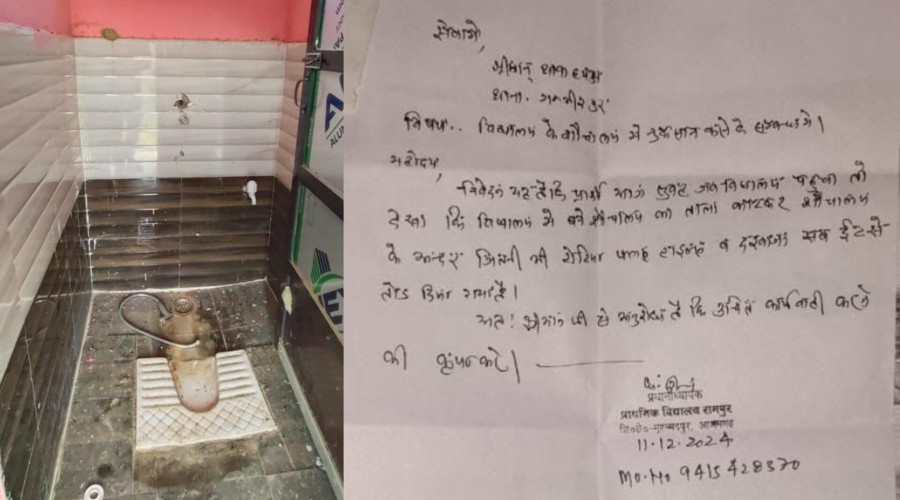 सेवामे,
श्रीमान् थानाध्यक्ष
थाना- गम्भीरपुर
विषय.. विद्यालय के शौचालय में नुकसान करने के सम्बन्ध में।
महोदय,
निवेदन यह है कि प्रार्थी आज सुबह जब विद्यालय पहुंचा तो
देखा कि विद्यालय में बने शौचालय का ताला काटकर शौचालय
के अन्दर जितनी भी टोटिया फ्लश टाइल्स व दरवाजा सब ईट से
तोड दिया गया है।
अतः श्रीमान जी से अनुरोध है कि उचित कार्यवाही करने
की कृपा करे।
प्रधानाध्यापक
प्राथमिक विद्यालय रामपुर
वि०खे०-मुहम्मदपुर, आजमगढ़
11-12-2024
Mo.No 9415428570